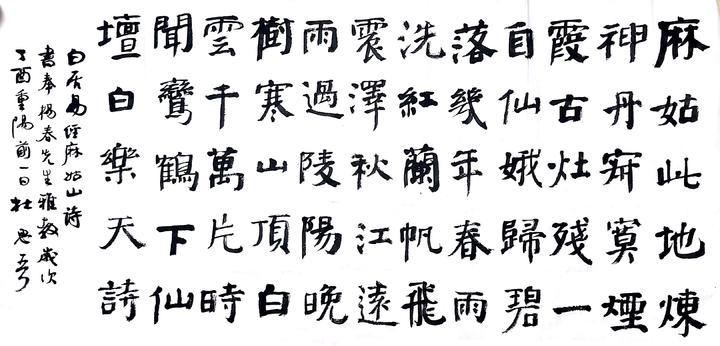 麻姑此地煉
神丹寂寞煙
霞古灶殘一
自仙娥歸碧
落幾年春雨
洗紅蘭帆飛
震澤秋江遠
雨過陵陽晚
樹寒山頂白
雲千萬片時
聞鸞鶴下仙
壇白樂天詩
白居易經麻姑山詩
書奉楊春先生雅教歲次
丁酉重陽前一日杜